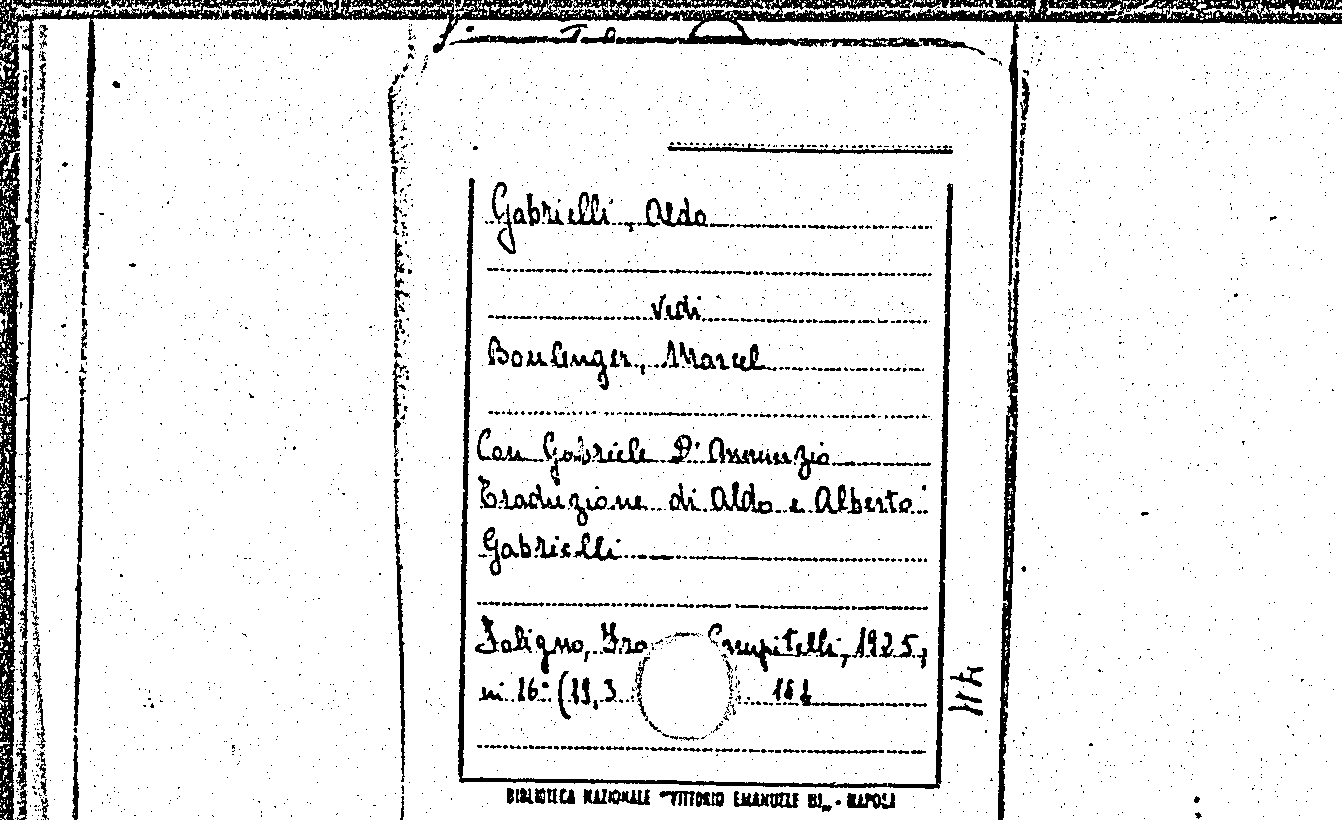 Gabrielli, Aldo
vedi
Boulenger, Marcel
Con Gabriele D'Annunzio
Traduzione di Aldo e Alberto
Gabrielli
Foligno, Campitelli, 1925,
in 16° (19,3
BIBLIOTECA NAZIONALE "VITTORIO EMANUELE III" - NAPOLI